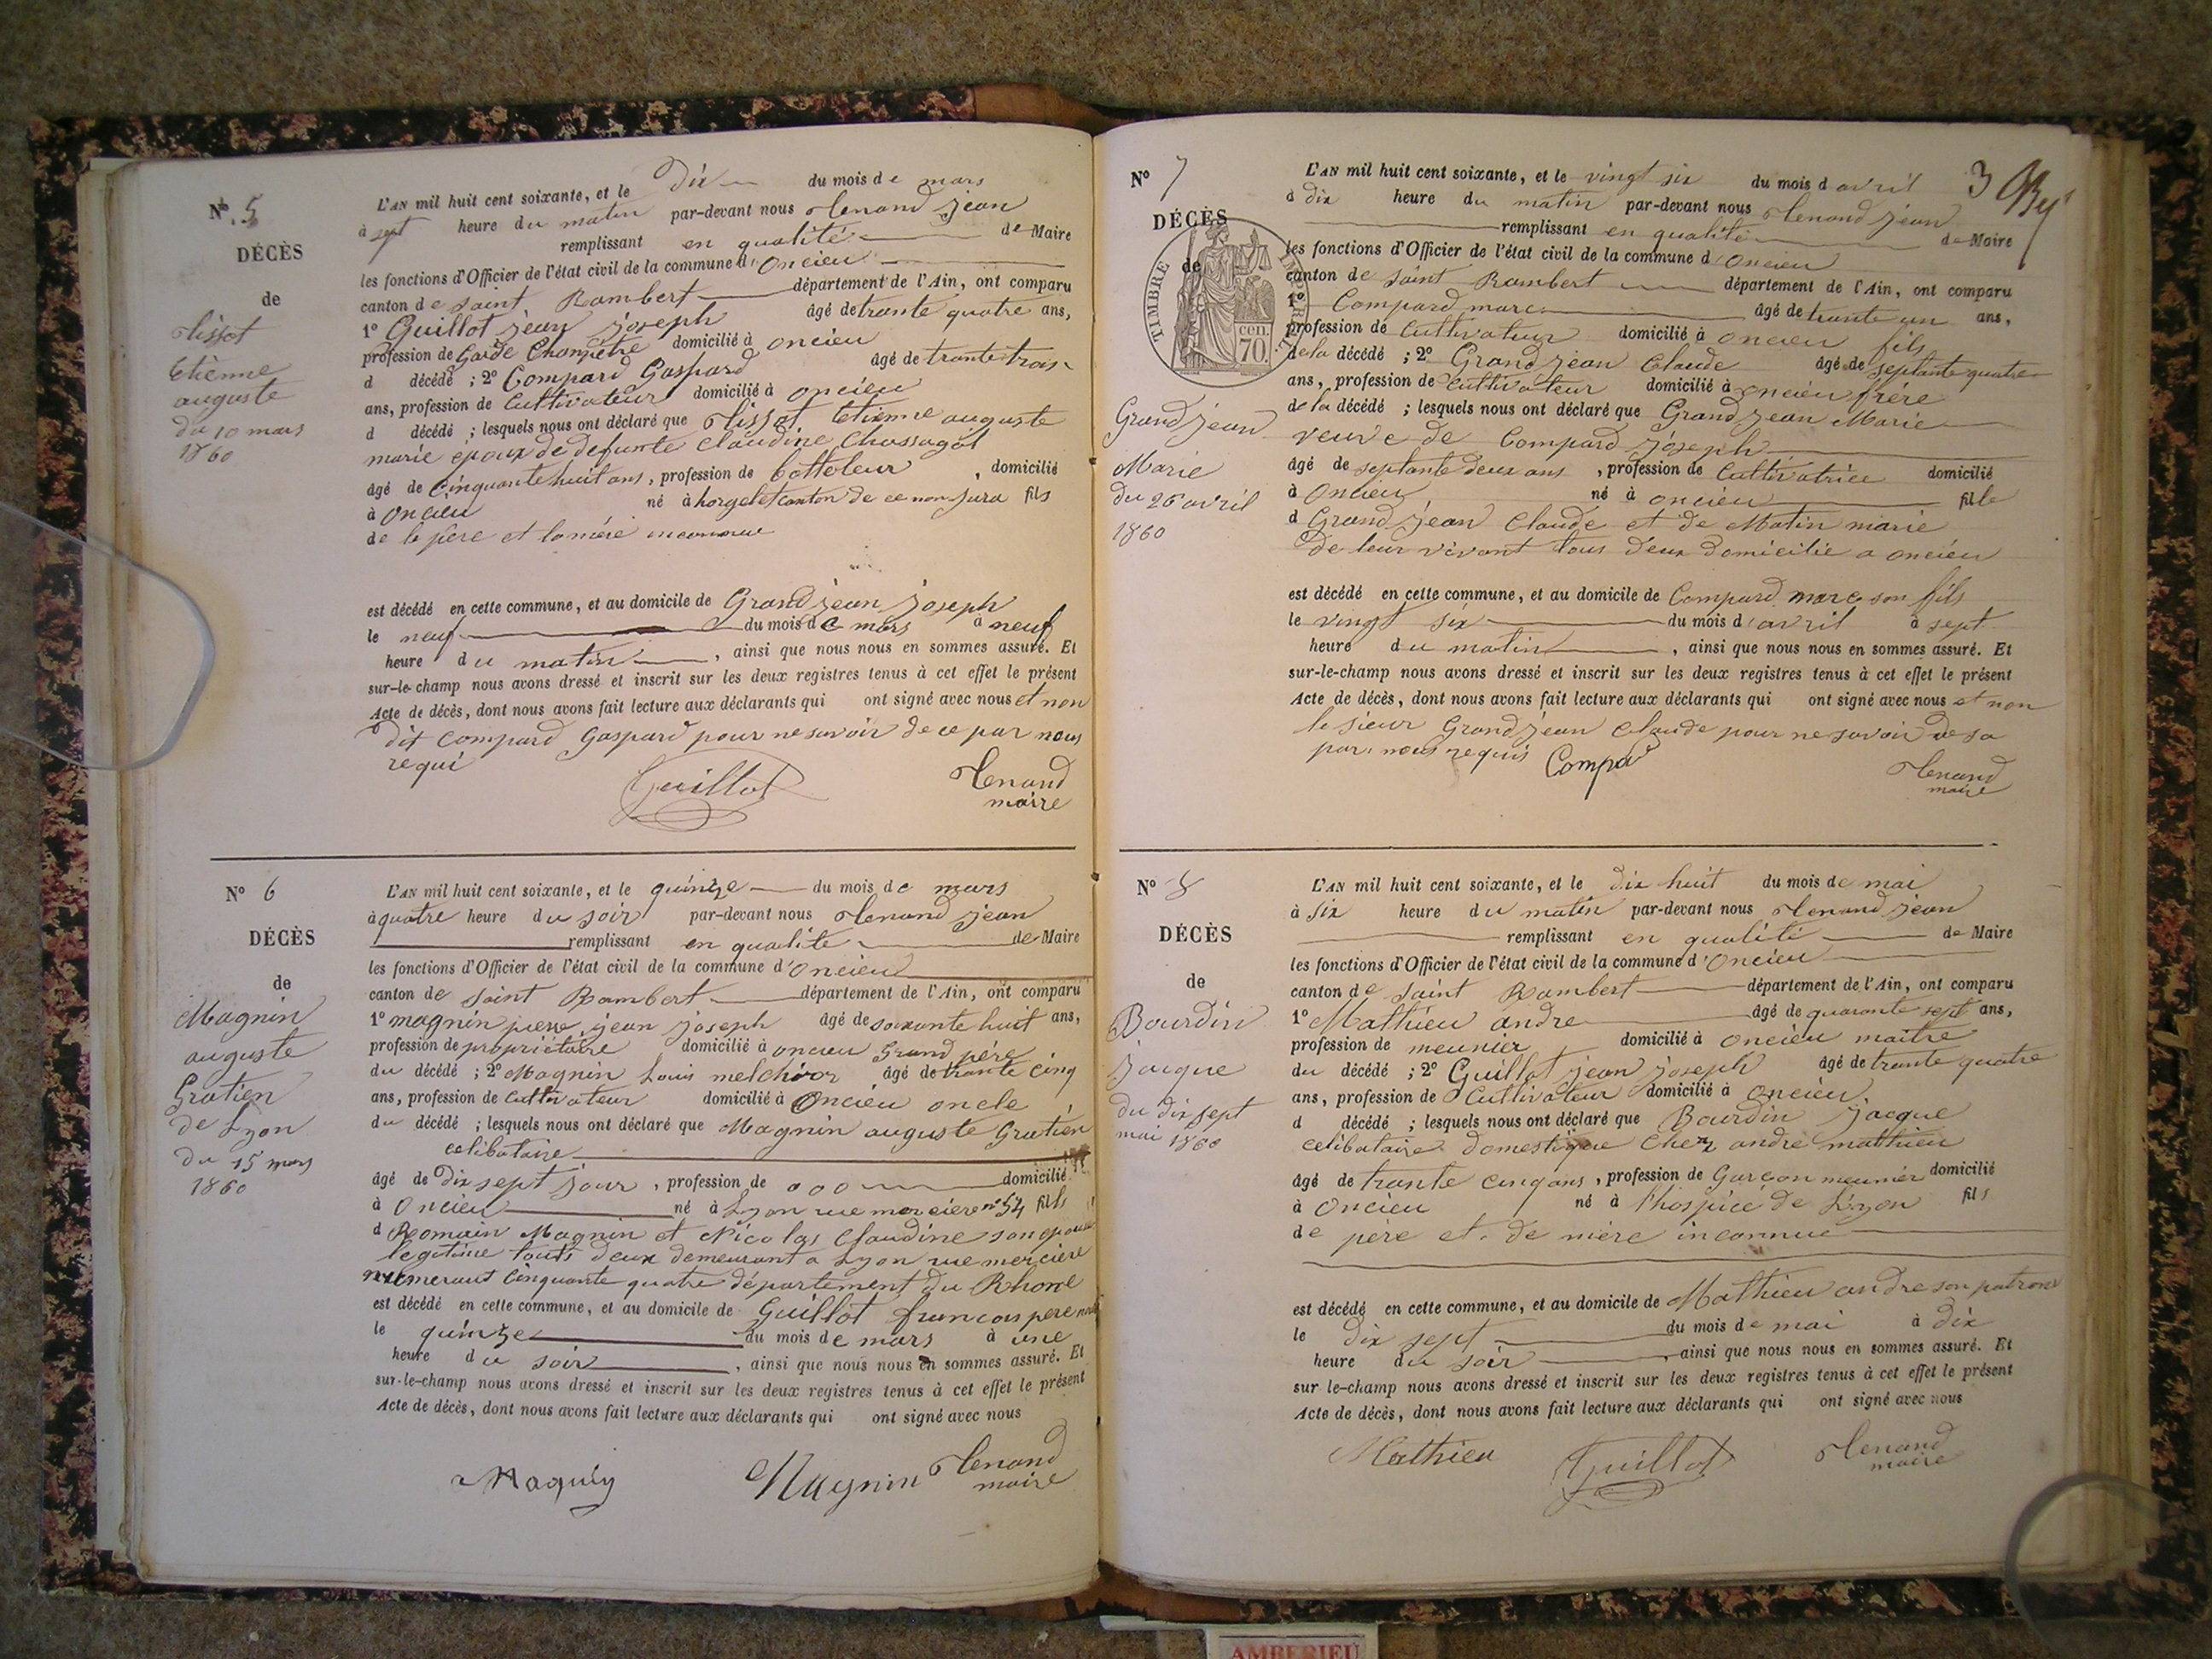 N° 5
DÉCÈS
de
Tissot
Etienne
auguste
du 10 mars
1860
L'AN mil huit cent soixante, et le Dix du mois de mars
à sept heure du matin par-devant nous Tenand jean
remplissant en qualité de Maire
les fonctions d'Officier de l'état civil de la commune d'Oncieu
canton de saint Rambert département de l'Ain, ont comparu
1° Guillot jean joseph âgé de trante quatre ans,
profession de Garde Champetre domicilié à oncieu
d décédé ; 2° Compard Gaspard âgé de trante trois
ans, profession de Cultivateur domicilié à oncieu
d décédé ; lesquels nous ont déclaré que Tissot Etienne auguste
marie epoux de defunte Claudine Chassagot
âgé de Cinquante huit ans, profession de botteleur, domicilié
à Oncieu né à horgelet canton de ce nom jura fils
de le père et la mére inconnue
est décédé en cette commune, et au domicile de Grandjean joseph
le neuf du mois de mars à neuf
heure du matin, ainsi que nous nous en sommes assuré. Et
sur-le-champ nous avons dressé et inscrit sur les deux registres tenus à cet effet le présent
Acte de décès, dont nous avons fait lecture aux déclarants qui ont signé avec nous et non
dit Compard Gaspard pour ne savoir de ce par nous
requi
Guillot
Tenand
maire
N° 6
DÉCÈS
de
Magnin
auguste
Gratien
de Lyon
du 15 mars
1860
L'AN mil huit cent soixante, et le quinze du mois de mars
à quatre heure du soir par-devant nous Tenand jean
remplissant en qualite de Maire
les fonctions d'Officier de l'état civil de la commune d'Oncieu
canton de saint Rambert département de l'Ain, ont comparu
1° magnin pierre jean joseph âgé de soixante huit ans,
profession de propriétaire domicilié à oncieu Grand pére
du décédé ; 2° Magnin Louis melchior âgé de trante cinq
ans, profession de Cultivateur domicilié à Oncieu oncle
du décédé ; lesquels nous ont déclaré que Magnin auguste Gratien
celibataire
âgé de Dix sept jour, profession de 000 domicilié
à Oncieu né à Lyon rue merciere n° 54 fils
d Romain Magnin et Nicolas Claudine son epouse
legitime touts deux demeurant a Lyon rue merciere
numeraut Cinquante quatre département du Rhone
est décédé en cette commune, et au domicile de Guillot francois pere
le quinze du mois de mars à une
heure du soir, ainsi que nous nous en sommes assuré. Et
sur-le-champ nous avons dressé et inscrit sur les deux registres tenus à cet effet le présent
Acte de décès, dont nous avons fait lecture aux déclarants qui ont signé avec nous
Magnin
Magnin
Tenand
maire
3
N° 7
DÉCÈS
de
TIMBRE IMPERIAL
cen.
70.
Grandjean
Marie
du 26 avril
1860
L'AN mil huit cent soixante, et le vingt six du mois d avril
à dix heure du matin par-devant nous Tenand jean
remplissant en qualité de Maire
les fonctions d'Officier de l'état civil de la commune d'Oncieu
canton de saint Rambert département de l'Ain, ont comparu
1° Compard marc âgé de trante un ans,
profession de Cultivateur domicilié à oncieu fils
de la décédé ; 2° Grandjean Claude âgé de septante quatre
ans, profession de Cultivateur domicilié à oncieu frére
de la décédé ; lesquels nous ont déclaré que Grandjean Marie
veuve de Compard joseph
âgé de septante deux ans, profession de Cultivatrice domicilié
à Oncieu né à oncieu fille
d Grandjean Claude et de Matin marie
de leur vivant tous deux domicilie a oncieu
est décédé en cette commune, et au domicile de Compard marc son fils
le vingt six du mois d'avril à sept
heure du matin, ainsi que nous nous en sommes assuré. Et
sur-le-champ nous avons dressé et inscrit sur les deux registres tenus à cet effet le présent
Acte de décès, dont nous avons fait lecture aux déclarants qui ont signé avec nous et non
le sieur Grandjean Claude pour ne savoir de sa
par nous requis
Compa
Tenand
maire
N° 8
DÉCÈS
de
Bourdin
jacque
du dix sept
mai 1860
L'AN mil huit cent soixante, et le dix huit du mois de mai
à six heure du matin par-devant nous Tenand jean
remplissant en qualité de Maire
les fonctions d'Officier de l'état civil de la commune d'Oncieu
canton de saint Rambert département de l'Ain, ont comparu
1° Mathieu andre âgé de quarante sept ans,
profession de meunier domicilié à oncieu maitre
du décédé ; 2° Guillot jean joseph âgé de trante quatre
ans, profession de Cultivateur domicilié à Oncieu
d décédé ; lesquels nous ont déclaré que Bourdin jacque
celibataire domestique Chez andre mathieu
âgé de trante cinq ans, profession de Garçon meunier domicilié
à Oncieu né à l'hospice de Lyon fils
de père et de mère inconnue
est décédé en cette commune, et au domicile de Mathieu andre son patron
le dix sept du mois de mai à dix
heure du soir, ainsi que nous nous en sommes assuré. Et
sur le-champ nous avons dressé et inscrit sur les deux registres tenus à cet effet le présent
Acte de décès, dont nous avons fait lecture aux déclarants qui ont signé avec nous
Mathieu
Guillot
Tenand
maire
AMBERIEU